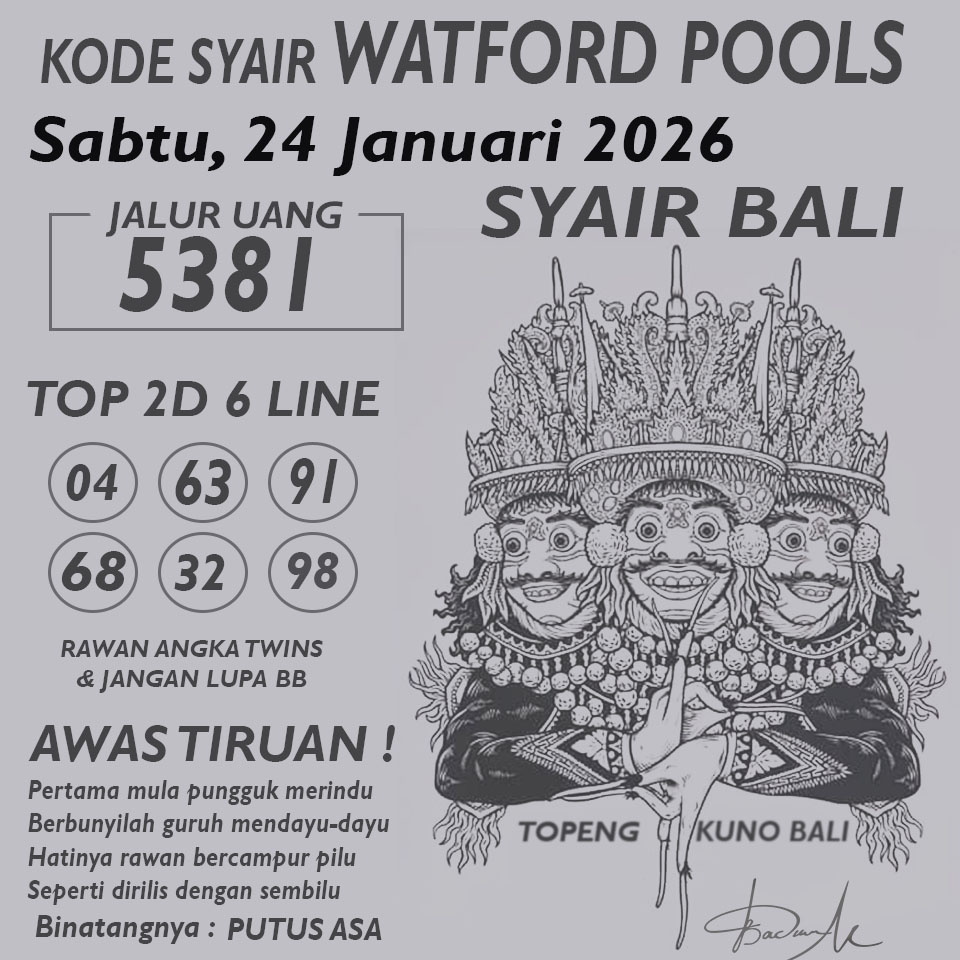 KODE SYAIR WATFORD POOLS
Sabtu, 24 Januari 2026
SYAIR BALI
JALUR UANG
5381
TOP 2D 6 LINE
04 63 91
68 32 98
RAWAN ANGKA TWINS
& JANGAN LUPA BB
AWAS TIRUAN !
Pertama mula pungguk merindu
Berbunyilah guruh mendayu-dayu
Hatinya rawan bercampur pilu
Seperti dirilis dengan sembilu
Binatangnya : PUTUS ASA
TOPENG KUNO BALI